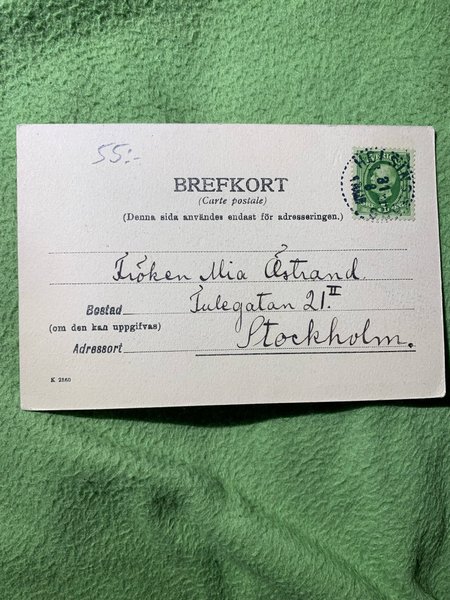 55:-
BREFKORT
(Carte postale)
(Denna sida användes endast för adresseringen.)
Fröken Mia Åstrand
Bostad Tulegatan 21.II
(om den kan uppgifvas)
Adressort Stockholm.
K 2860